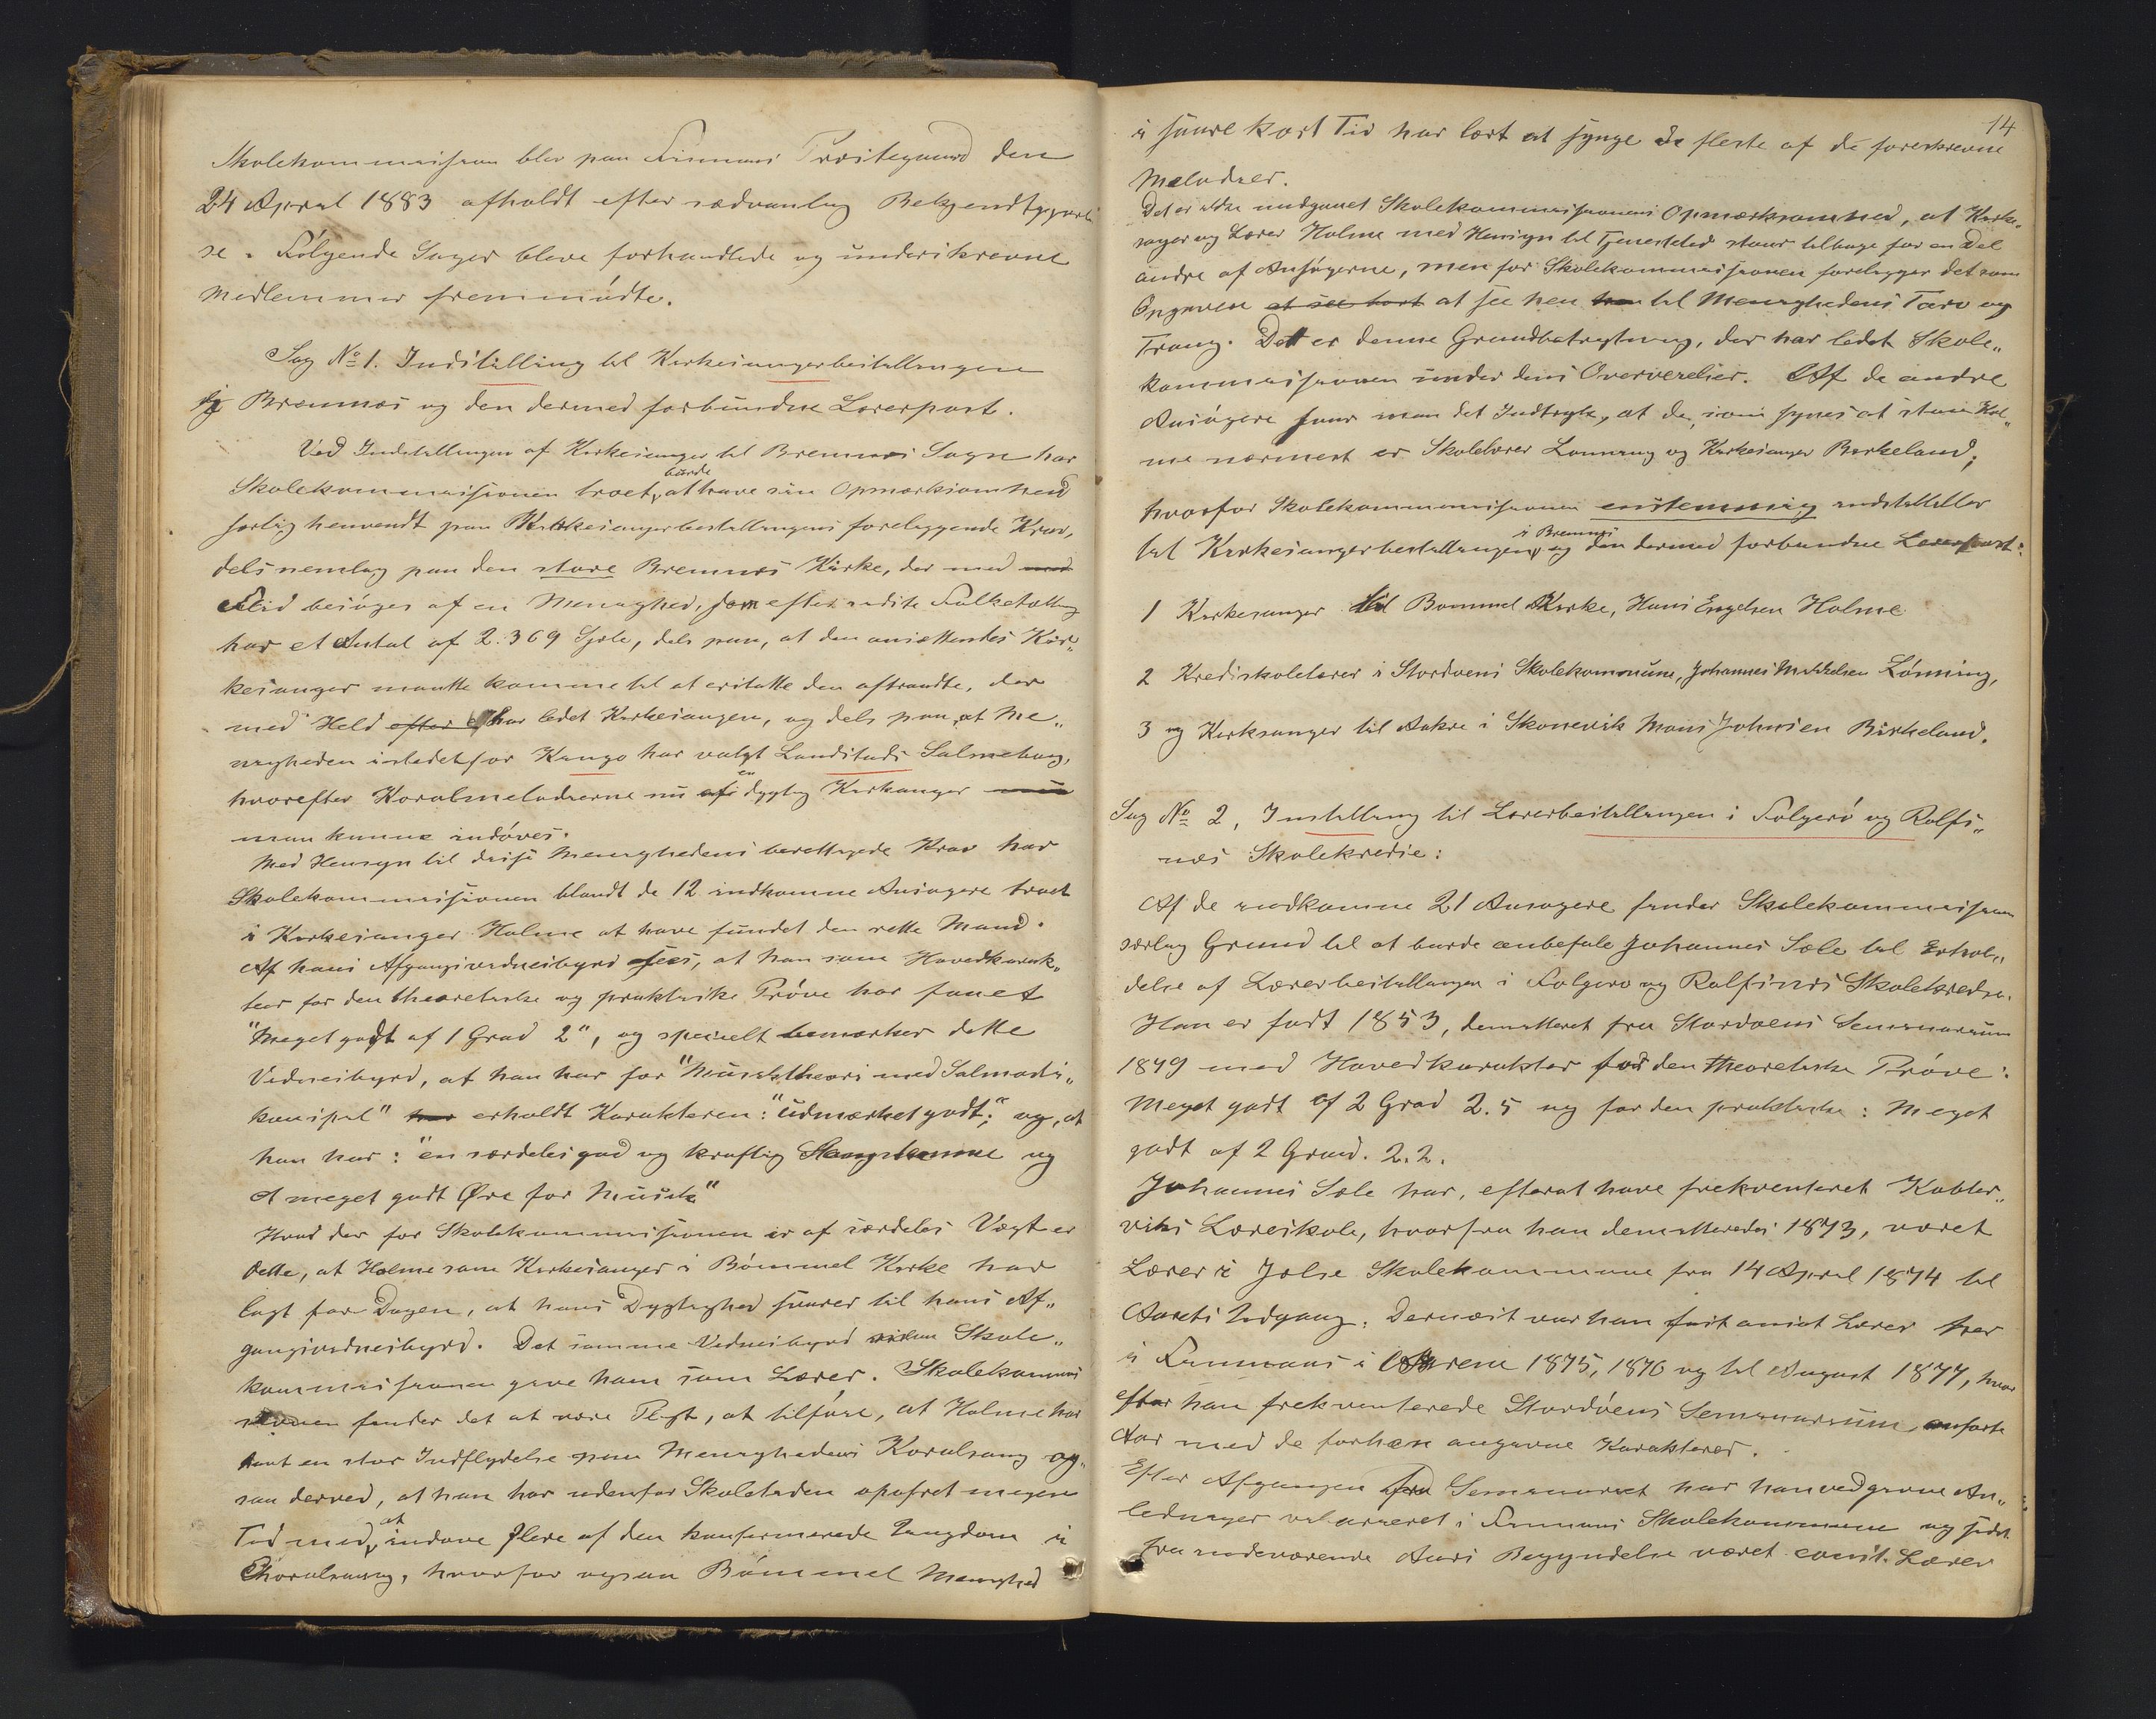 Skolekommission blev paa Finnaas Præstegaard den
24 April 1883 afholdt efter sædvanlig Bekjendtgjørel
se. Følgende Sager bleve forhandlede og underskrevne
Medlemmer fremmødte.
Sag No 1. Indstilling til Kirkesangerbestillingen
i Bremnæs og den dermed forbundne Lærerpost.
Ved Indstillingen af Kirkesanger til Bremnæs Sogn har
Skolekommissionen troet, burde at have sin Opmærksomhed
særlig henvendt paa Kirkesangerbestillingens foreliggende Krav,
dels nemlig paa den store Bremnæs Kirke, der med med
Flid besøges af en Menighed, som efter sidste Folketælling
har et Antal af 2.369 Sjæle, dels paa, at den ansættendes Kir„
kesanger maatte komme til at erstatte den aftraadte, der
med Held efter har ledet Kirkesangen, og dels paa, at Me„
nigheden istedetfor Kingo har valgt Landstads Salmebog,
hvorefter Koralmelodierne nu af en dygtig Kirksanger
man kunne indøves.
Med Hensyn til disse Menighedens berettigede Krav har
Skolekommissionen blandt de 12 indkomne Ansøgere troet
i Kirkesanger Holme at have fundet den rette Mand.
Af hans Afgangsvidnesbyrd sees, at han som Hovedkarak„
teer for den theoretiske og praktiske Prøve har faaet
"Meget godt af 1 Grad 2", og specielt bemærker dette
Vidnesbyrd, at han har for "Musiktheori med Salmodi„
konspil" har erholdt Karakteren: "Udmærket godt;" og, at
han har: "en særdeles god og kraftig Sangstemme og
et meget godt Øre for Musik"
Hvad der for Skolekommissionen er af særdeles Vægt er
dette, at Holme som Kirkesanger i Bømmel Kirke har
lagt for Dagen, at hans Dygtighed svarer til hans Af„
gangsvidnesbyrd. Det samme Vidnesbyrd vil Skole„
kommissionen give ham som Lærer. Skolekommis
sionen finder det at være Pligt, at tilføie, at Holme har
havt en stor Indflydelse paa Menighedens Koralsang og„
saa derved, at han har udenfor Skoletiden opofret megen
Tid med, at indøve flere af den konfirmerede Ungdom i
Choralsang, hvorfor ogsaa Bømmel Menighed
14
i svare kort Tid har lært at synge de fleste af de foreskrevne
Melodier.
Det er ikke undgaaet Skolekommissionens Opmærksomhed, at Kirke„
sanger og Lærer Holme med Hensyn til Tjenestetid staar tilbage for en Del
andre af Ansøgerne, men for Skolekommissionen foreligger det som
Opgaven at see bort at see hen til Menighedens Tarv og
Trang. Dette er denne Grundbetragtning, der har ledet Skole„
kommissionen under dens Overveielser. Af de andre
Ansøgere faar man det Indtryk, at de, som synes at staa Hol„
me nærmest er Skolelærer Lønning og Kirkesanger Birkeland;
hvorfor Skolekommissionen enstemmig indstilleller
til Kirkesangerbestillingen i Bremnæs og den dermed forbundne Lærerpost:
1 Kirkesanger til Bømmel Kirke, Hans Engelsen Holme
2 Kredsskolelærer i Stordøens Skolekommune, Johannes Mikkelsen Lønning,
3 og Kirksanger til Aakre i Skonevik Mons Johnsen Birkeland.
Sag No 2, Instilling til Lærerbestillingen i Folgerø og Rolfs„
næs Skolekredse:
Af de indkomne 21 Ansøgere finder Skolekommission
særlig Grund til at burde anbefale Johannes Sæle til Erhol„
delse af Lærerbestillingen i Folgerø og Rolfsnæs Skolekredse.
Han er født 1853, demitteret fra Stordøens Seminarium
1879 med Hovedkarakter for den theoretiske Prøve:
Meget godt af 2 Grad 2.5 og for den praktiske: Meget
godt af 2 Grad. 2.2.
Johannes Sæle har, efterat have frekventeret Kobler„
viks Læreskole, hvorfra han demitteredes 1873, været
Lærer i Jølse Skolekommune fra 14 April 1874 til
Aarets Udgang. Dernæst var han fast ansat Lærer her
i Finnaas i Aarene 1875, 1876 og til August 1877, hvor
efter han frekventerede Stordøens Seminarium, anførte
Aar med de forhen angivne Karakterer.
Efter Afgangen fra Seminariet har han ved givne An„
ledninger vikarieret i Finnaas Skolekommune og sidst
fra indeværende Aars Begyndelse været const. Lærer